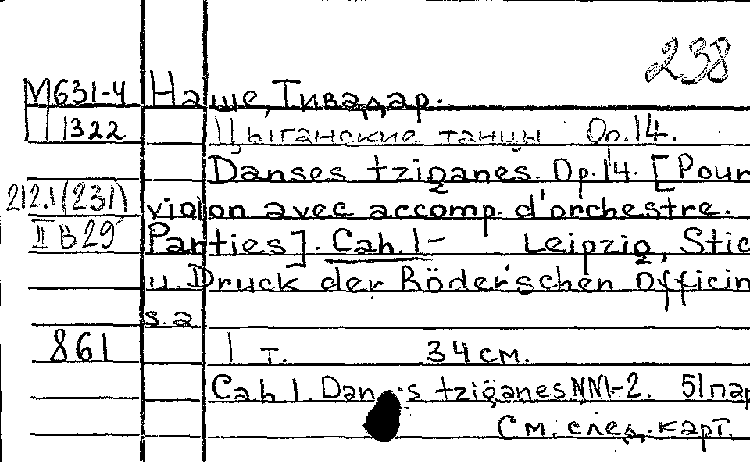 238
М631-4 Наше, Тивадар.
1322 Цыганские танцы Op.14.
Danses tziganes. Op.14. [Pour
212.1(231) violon avec accomp. d'orchestre.
II В 29 Parties]. Cah. 1- Leipzig, Stic
u. Druck der Röder'schen Officin
s.a
861 1 т. 34 см.
Cah 1. Dan s tziganes NN1-2. 51 пар
См. след. карт.